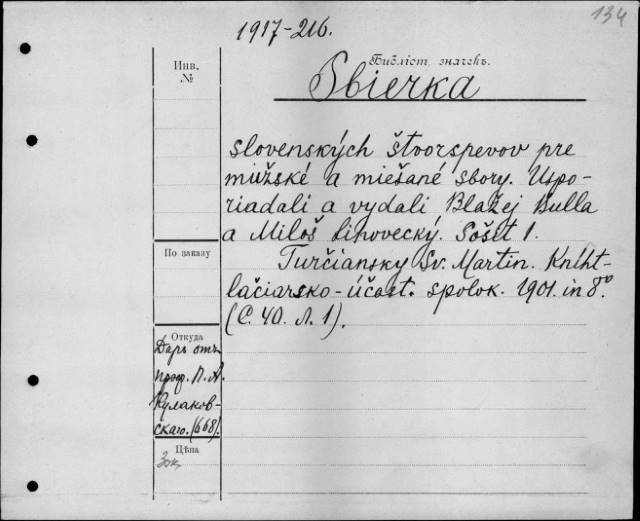 134
1917-216.
Библіот. значекъ.
Инв.
№
Sbierka
slovenských štvorspevov pre
mužské a miešané sbory. Uspo-
riadali a vydali Blažej Bulla
a Miloš Lihovecký. Sošit 1.
По заказу
Turčiansky Sv. Martin. Kníht-
lačiarsko-účast. spolok. 1901. in 8º.
(C. 40. Л. 1).
Откуда
Даръ отъ
проф. П. А.
Кулаков-
скаго. (668).
Цѣна